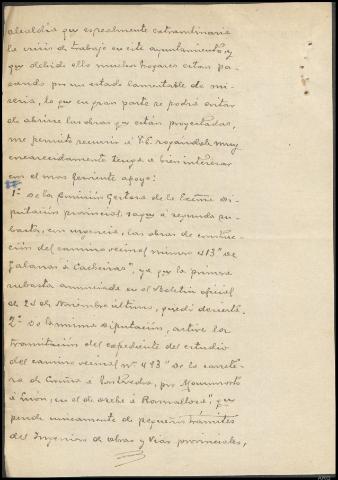 alcaldía que es realmente extraordinaria
la crisis de trabajo en este ayuntamiento, y
que debido ello muchos hogares estan pa-
sando por un estado lamentable de mi-
seria, lo que en gran parte se podrá evitar
de abrirse las obras que están proyectadas,
me permito recurrir á V.E. rogándole muy
encarecidamente tenga a bien interesar
con el mas ferviente apoyo:
1º De la Comisión Gestora de la Excma Di-
putación provincial, saque a segunda su-
basta, con urgencia, las obras de construc-
ción del camino vecinal número 413 "de
á Cacheiras", ya que la primera
subasta anunciada en el Boletin oficial
de 24 de Noviembre último, quedó desierta.
2º De la misma Diputación, active la
tramitación del expediente del estudio
del camino vecinal nº 493 "de la carrete-
ra de Coruña a Pontevedra, por
á en el de á que
pende unicamente de pequeños trámites
del Ingeniero de obras y Vías provinciales,